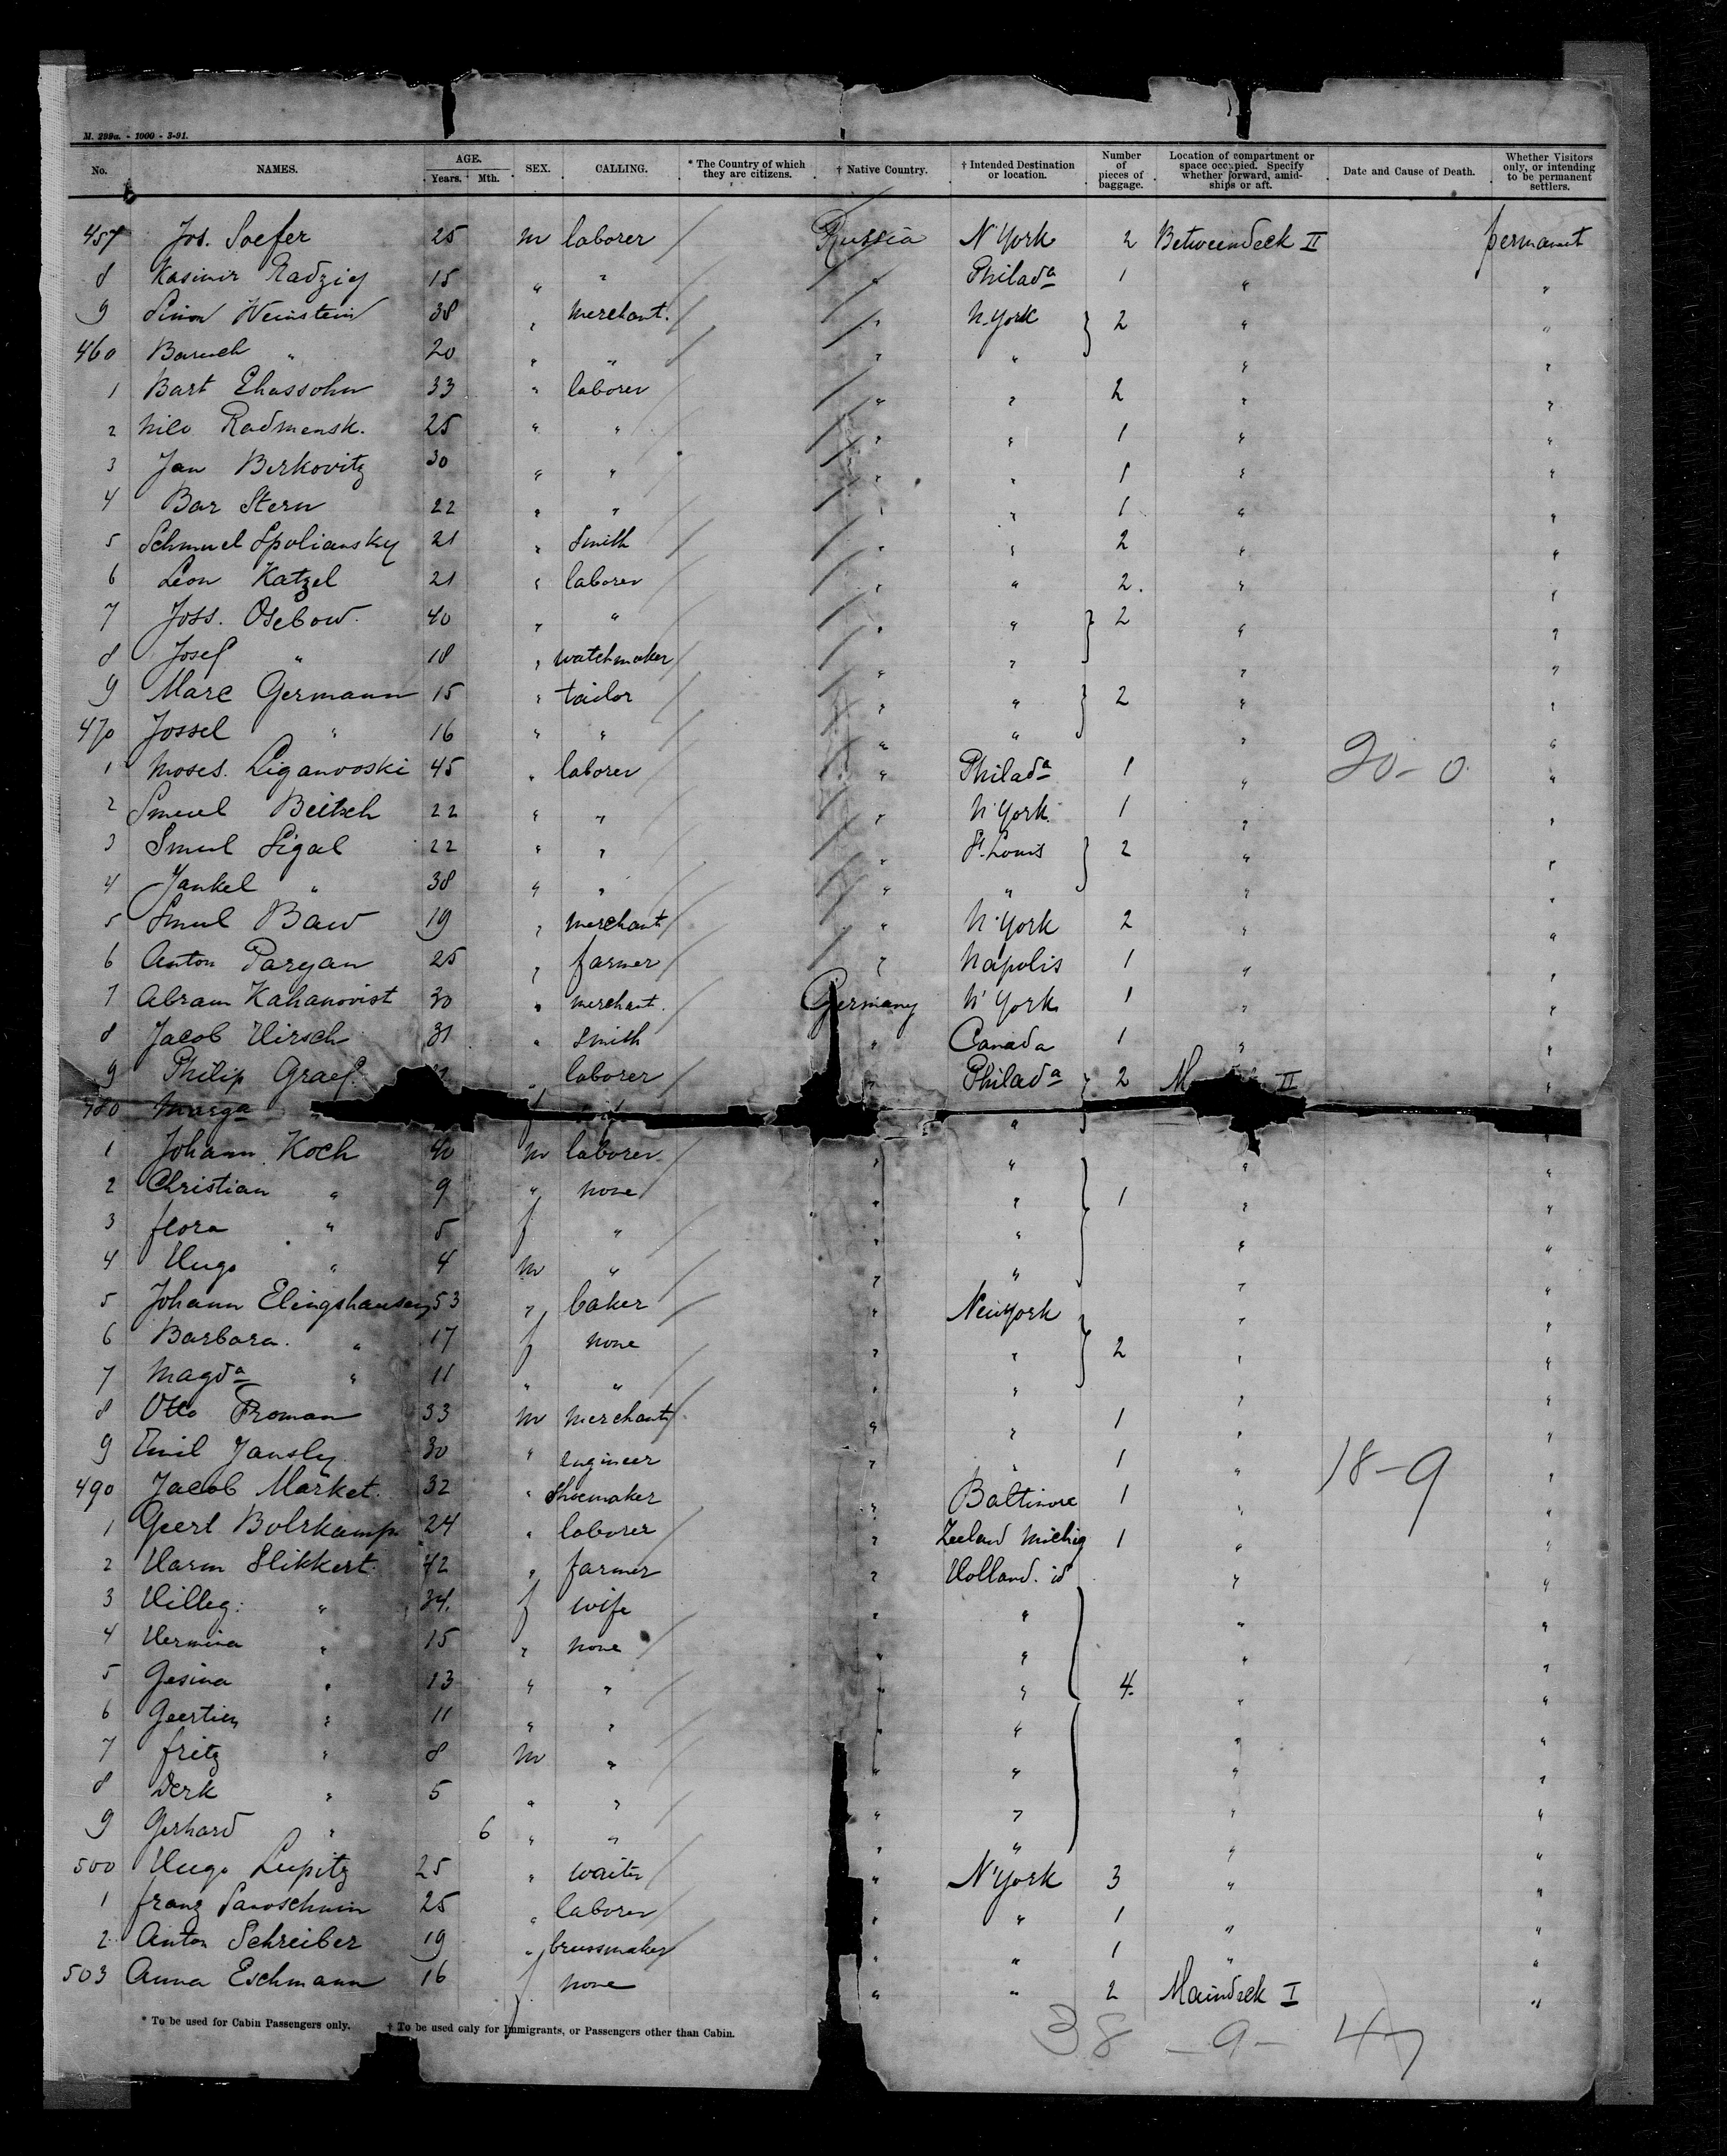 M. 299a. - 1000 - 3-91.
No. NAMES. AGE. Years. Mth. SEX. CALLING. * The Country of which they are citizens. † Native Country. † Intended Destination or location. Number of pieces of baggage. Location of compartment or space occupied. Specify whether forward, amidships or aft. Date and Cause of Death. Whether Visitors only, or intending to be permanent settlers.
457 Jos. Soefer 25 m laborer Russia N'York 2 Betweendeck II permanent
8 Kasimir Radzig 15 " " " Philada 1 " "
9 Simon Weinstein 38 " merchant. " N.York 2 " "
460 Baruch " 20 " " " " " "
1 Bart Chassohn 33 " laborer " " 2 " "
2 Radmensk. 25 " " " " 1 " "
3 Jan Berkovitz 30 " " " " 1 " "
4 Bar Stern 22 " " " " 1 " "
5 Schmuel Spoliansky 21 " Smith " " 2 " "
6 Leon Katzel 21 " laborer " " 2. " "
7 Joss. Osebow. 40 " " " " 2 " "
8 Josef " 18 " watchmaker " " " "
9 Marc Germann 15 " tailor " " 2 " "
470 Jossel " 16 " " " " " "
1 Moses. Liganooski 45 " laborer " Philada 1 " 20-0 "
2 Smeul Beitsch 22 " " " N'York 1 " "
3 Smul Sigal 22 " " " St. Louis 2 " "
4 Jankel " 38 " " " " " "
5 Smul Baw 19 " merchant " N'York 2 " "
6 Anton Paryan 25 " farmer " Napolis 1 " "
7 Abram Kahanovist 30 " merchant. Germany N'York 1 " "
8 Jacob Hirsch 31 " Smith " Canada 1 " "
9 Philip Graef. " laborer " Philada 2 II "
480 Marga " f "
1 Johann Koch 40 m laborer " " " "
2 Christian " 9 " none " " 1 " "
3 flora " 5 f " " " " "
4 Hugo " 4 m " " " " "
5 Johann Elingshausen 53 " baker " Newyork " "
6 Barbara. " 17 f none " " 2 " "
7 Magda " 11 " " " " " "
8 Otto Froman 33 m merchant " " 1 " "
9 Emil Jansly 30 " engineer " " 1 " 18-9 "
490 Jacob Market. 32 " Shoemaker " Baltimore 1 " "
1 Geert Bolrkamp 24 " laborer " Zeeland Michig 1 " "
2 Harm Slikkert 42 " farmer " Holland. id " "
3 Hilleg: " 34. f wife " " " "
4 Hermina " 15 " none " " " "
5 Gesina " 13 " " " " 4. " "
6 Geertien " 11 " " " " " "
7 fritz " 8 m " " " " "
8 Derk " 5 " " " " " "
9 Gerhard " 6 " " " " " "
500 Hugo Lupitz 25 " waiter " N'York 3 " "
1 franz 25 " laborer " " 1 " "
2 Anton Schreiber 19 " " " 1 " "
503 Anna Eschmann 16 f none " " 2 Maindeck I "
* To be used for Cabin Passengers only. † To be used only for Immigrants, or Passengers other than Cabin.
38 - 9 - 47